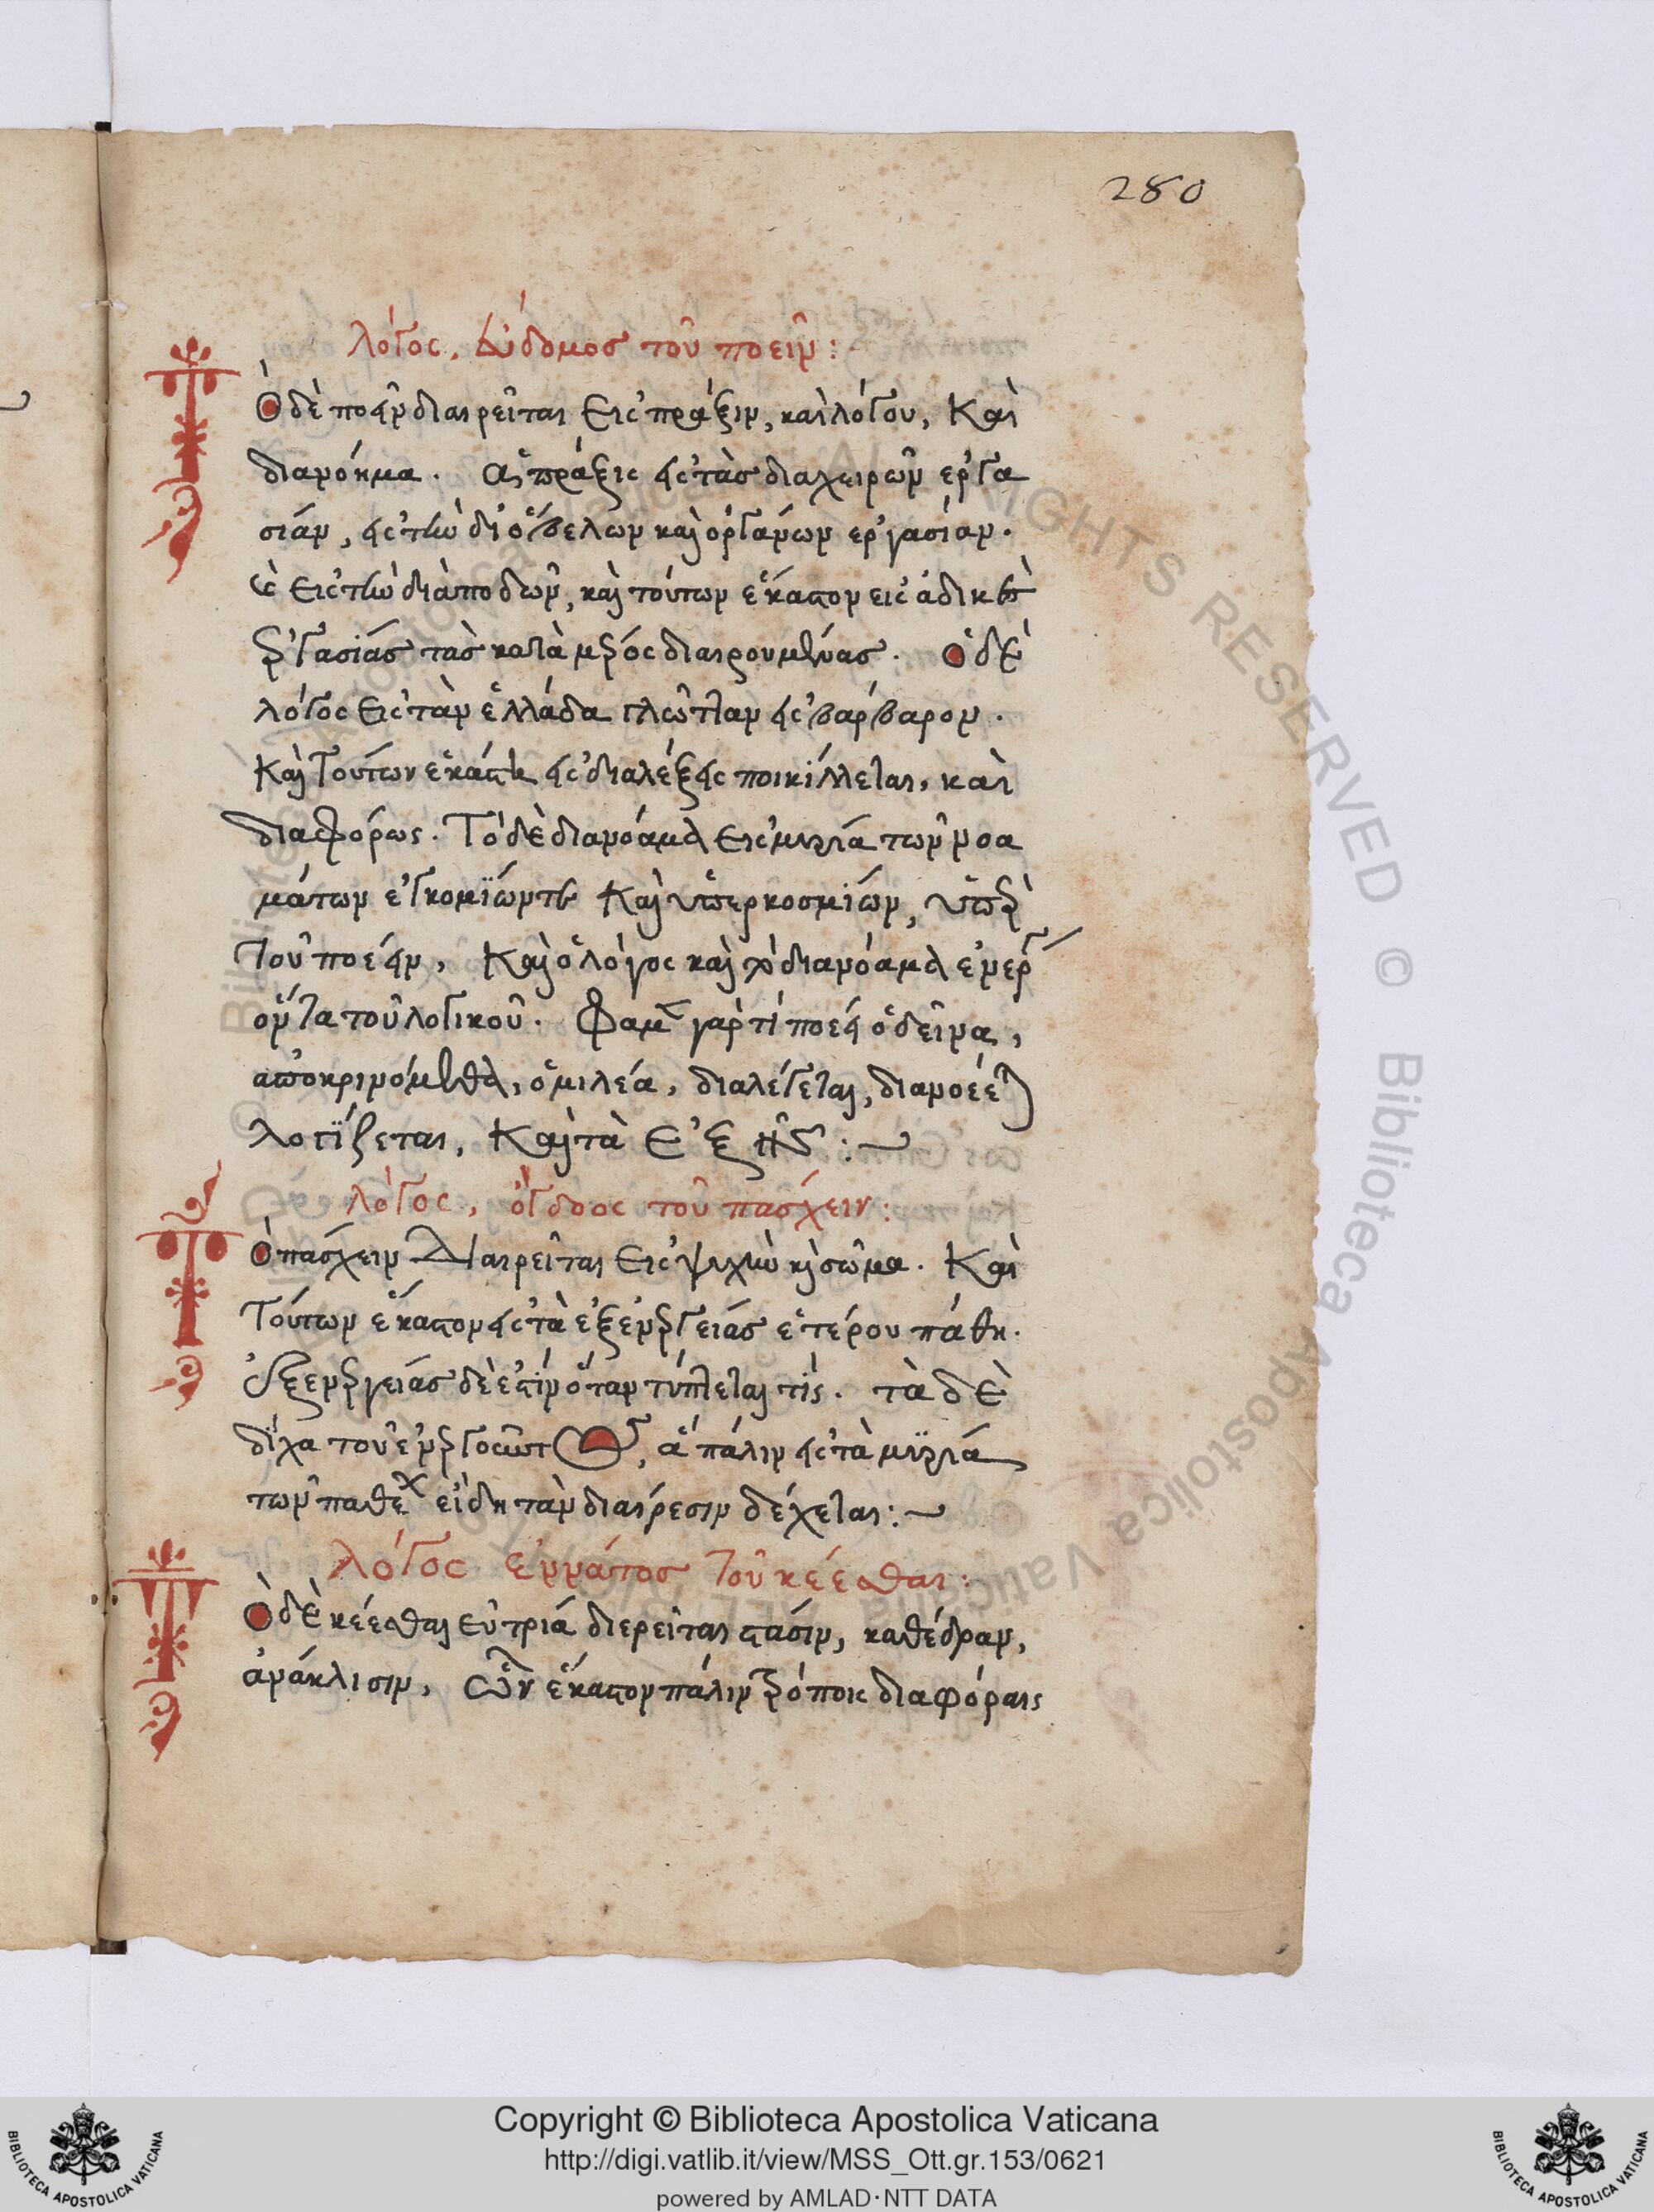 280
λόγος, ἕβδομος τοῦ ποιεῖν:
Τὸ δὲ ποιεῖν διαιρεῖται εἰς πράξιν, καὶ λόγον, καὶ
διανόημα. αἱ πράξις εἰς τὰς διαχειρῶν εργα
σίαν, εἰς τὴν δι' ὀ βελων καὶ οργάνων εργασίαν.
καὶ εἰς τὴν διάποδῶν, καὶ τούτων εκαστον εἰς
ἐργασίας τὰς κατὰ μέρος διαιρουμένας. ὁ δὲ
λόγος εἰς τὰν ἑλλάδα γλῶτταν εἰς βάρβαρον.
καὶ τούτων ἑκάστη εἰς διαλέξεις ποικίλλεται, καὶ
διαφόρως. Τὸ δὲ διανόαμα εἰς μυρία τῶν νοα
μάτων ἐγκομίων τε καὶ ὑπερκοσμίων, ὑπὲρ
τοῦ ποέειν, καὶ ὁ λόγος καὶ τὸ διανόαμα ἐνερ
οὖντα τοῦ λογικοῦ. φαμὲν γὰρ τί ποέει ὁ δεῖνα,
αποκρινόμεθα, ὁμιλέα, διαλέγεται, διανοέεται
λογίζεται, καὶ τὰ ἑξῆς:
λόγος, ὄγδοος τοῦ πασχειν:
Τὸ πασχειν διαιρεῖται εἰς ψυχὴν καὶ σῶμα. καὶ
τούτων ἑκαστον εἰς τὰ ἐξενεργείας ἑτέρου πάθη.
ἐξενεργείας δέ ἐστιν ὅταν τύπτεται τίς. τὰ δὲ
δίχα τοῦ ἐνεργοῦντος, ἃ πάλιν εἰς τὰ μυρία
τῶν παθέων εἴδη τὰν διαίρεσιν δέχεται:
λόγος εννάτος τοῦ κέεσθαι:
Τὸ δὲ κέεσθαι εὐ τριά διερεῖται στάσιν, καθέδραν,
ἀνάκλισιν, ὧν ἑκαστον πάλιν τρόποις διαφόραις
Copyright © Biblioteca Apostolica Vaticana
http://digi.vatlib.it/view/MSS_Ott.gr.153/0621
powered by AMLAD·NTT DATA